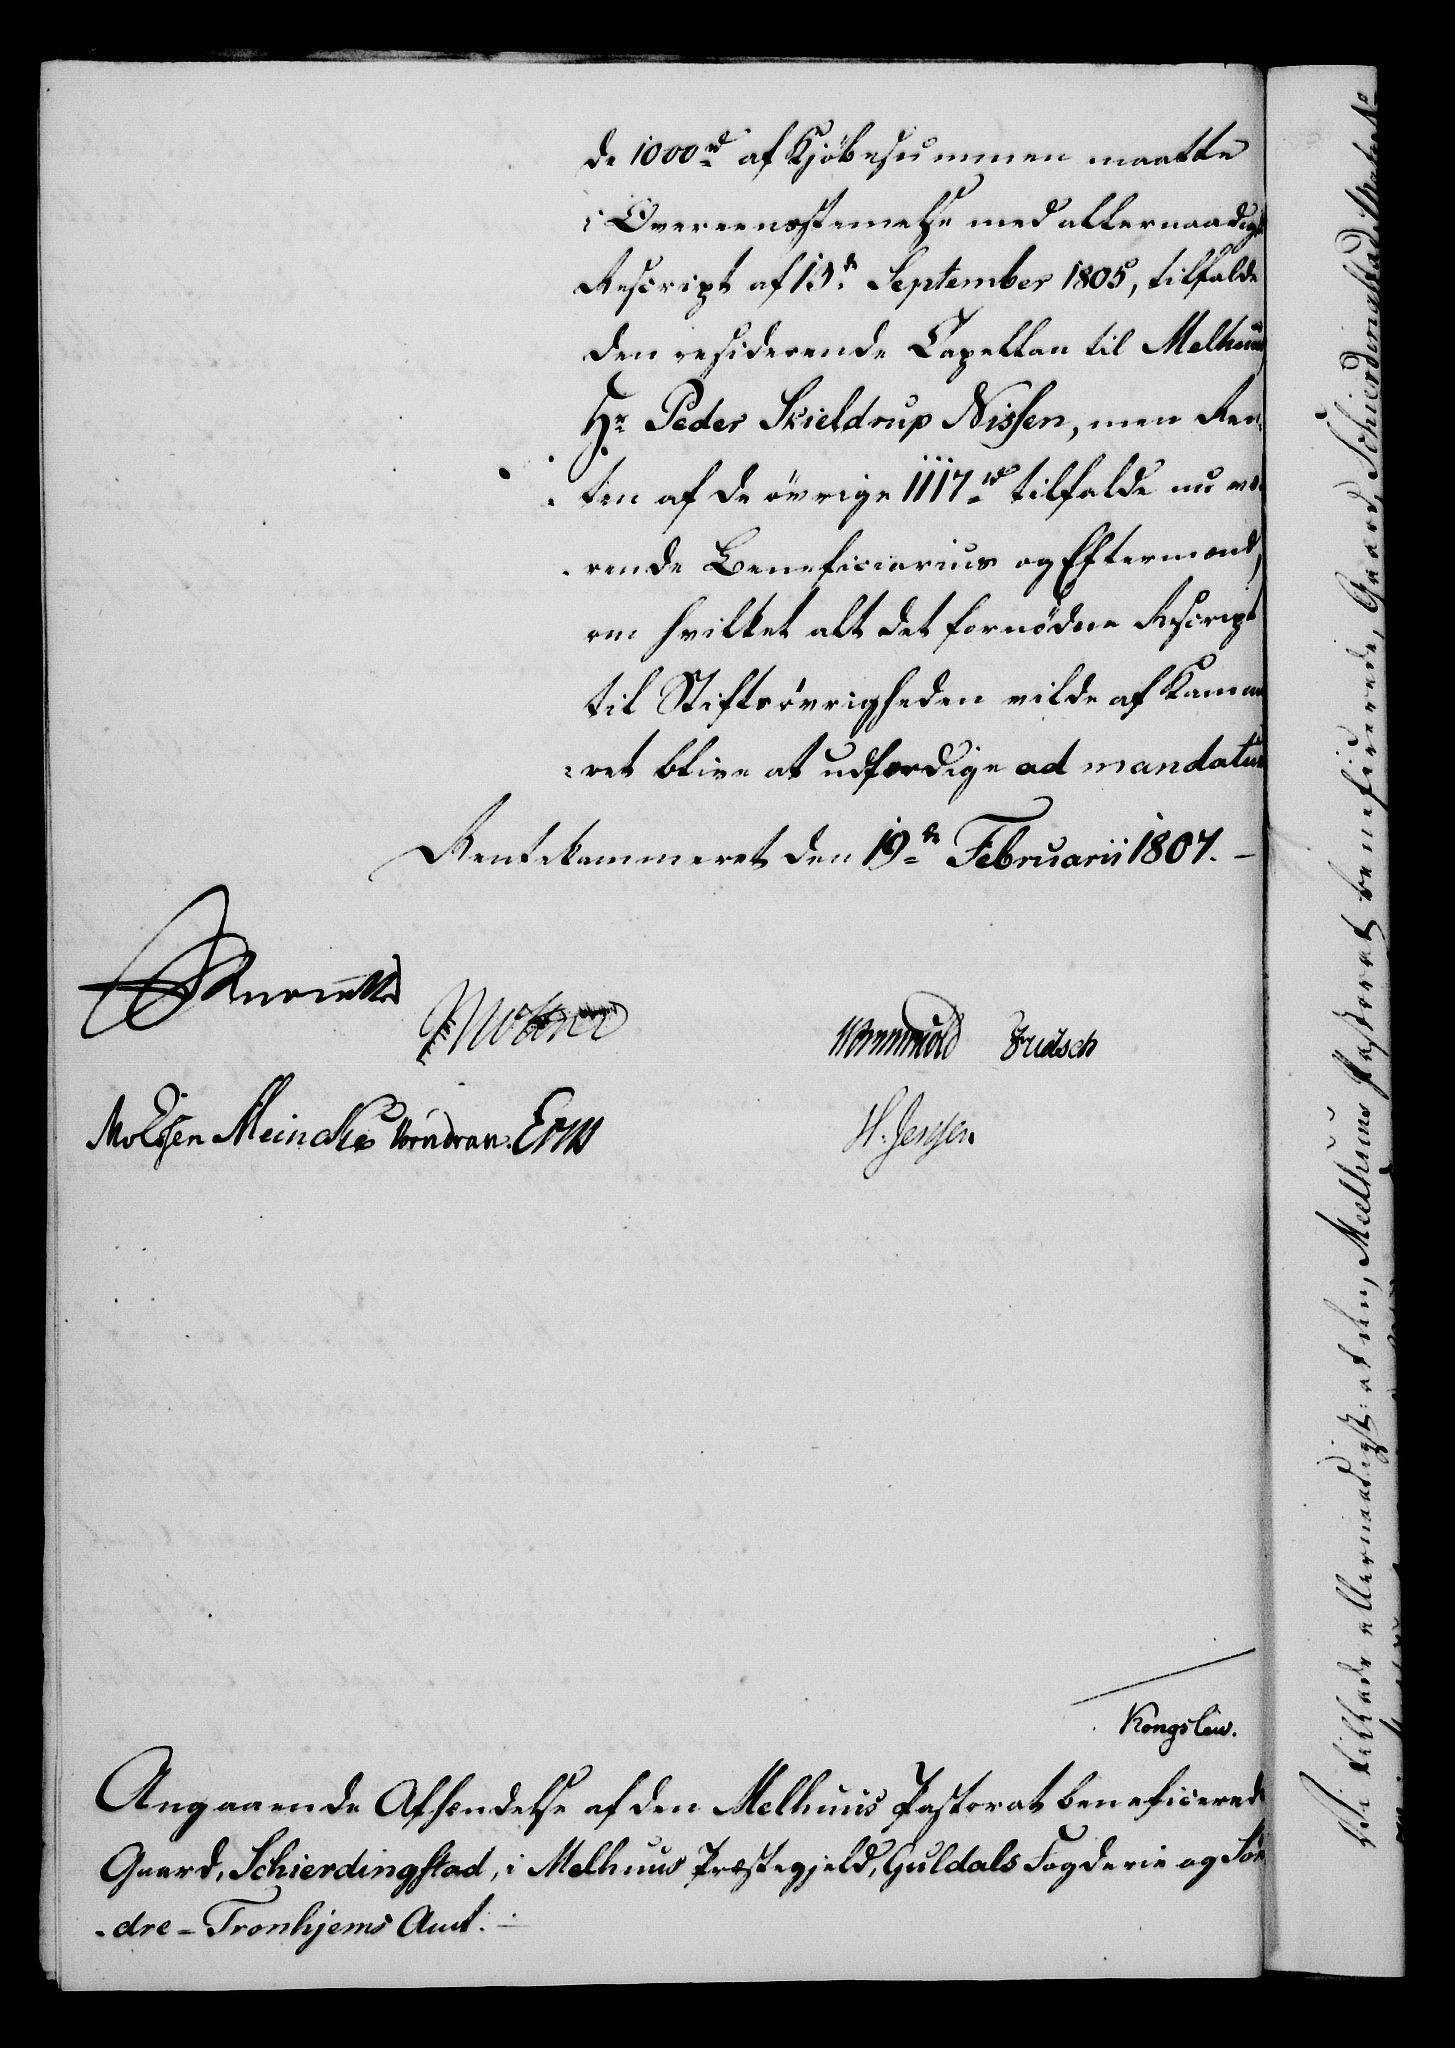 de 1000 rd af Kjöbesummen maatte
i Overeensstemelse med allernaadigst
Rescript af 13de September 1805, tilfalde
den residerende Capellan til Melhuus
Hr Peder Skieldrup Nissen, men Ren-
ten af de övrige 1117 rd tilfalde nu væ-
rende Beneficiarius og Eftermænd,
om hvilket alt det fornödne Rescript
til Stiftsövrigheden vilde af Kamme
ret blive at udfærdige ad mandatum
Rentekammeret den 19de Februarii 1807. -
Wormskiold Fridsch
Meincke Vorndran.
H. Jensen
Kongslew.
Angaaende Afhændelse af den Melhuus Pastorat beneficerede
Gaard, Schierdingstad, i Melhuus Præstegjeld, Guldals Fogderie og Sön
-dre-Tronhjems Amt.
Vi tillade allernaadigst: at den, Melhuus Pastorat beneficerede, Gaard, Schierdingstad